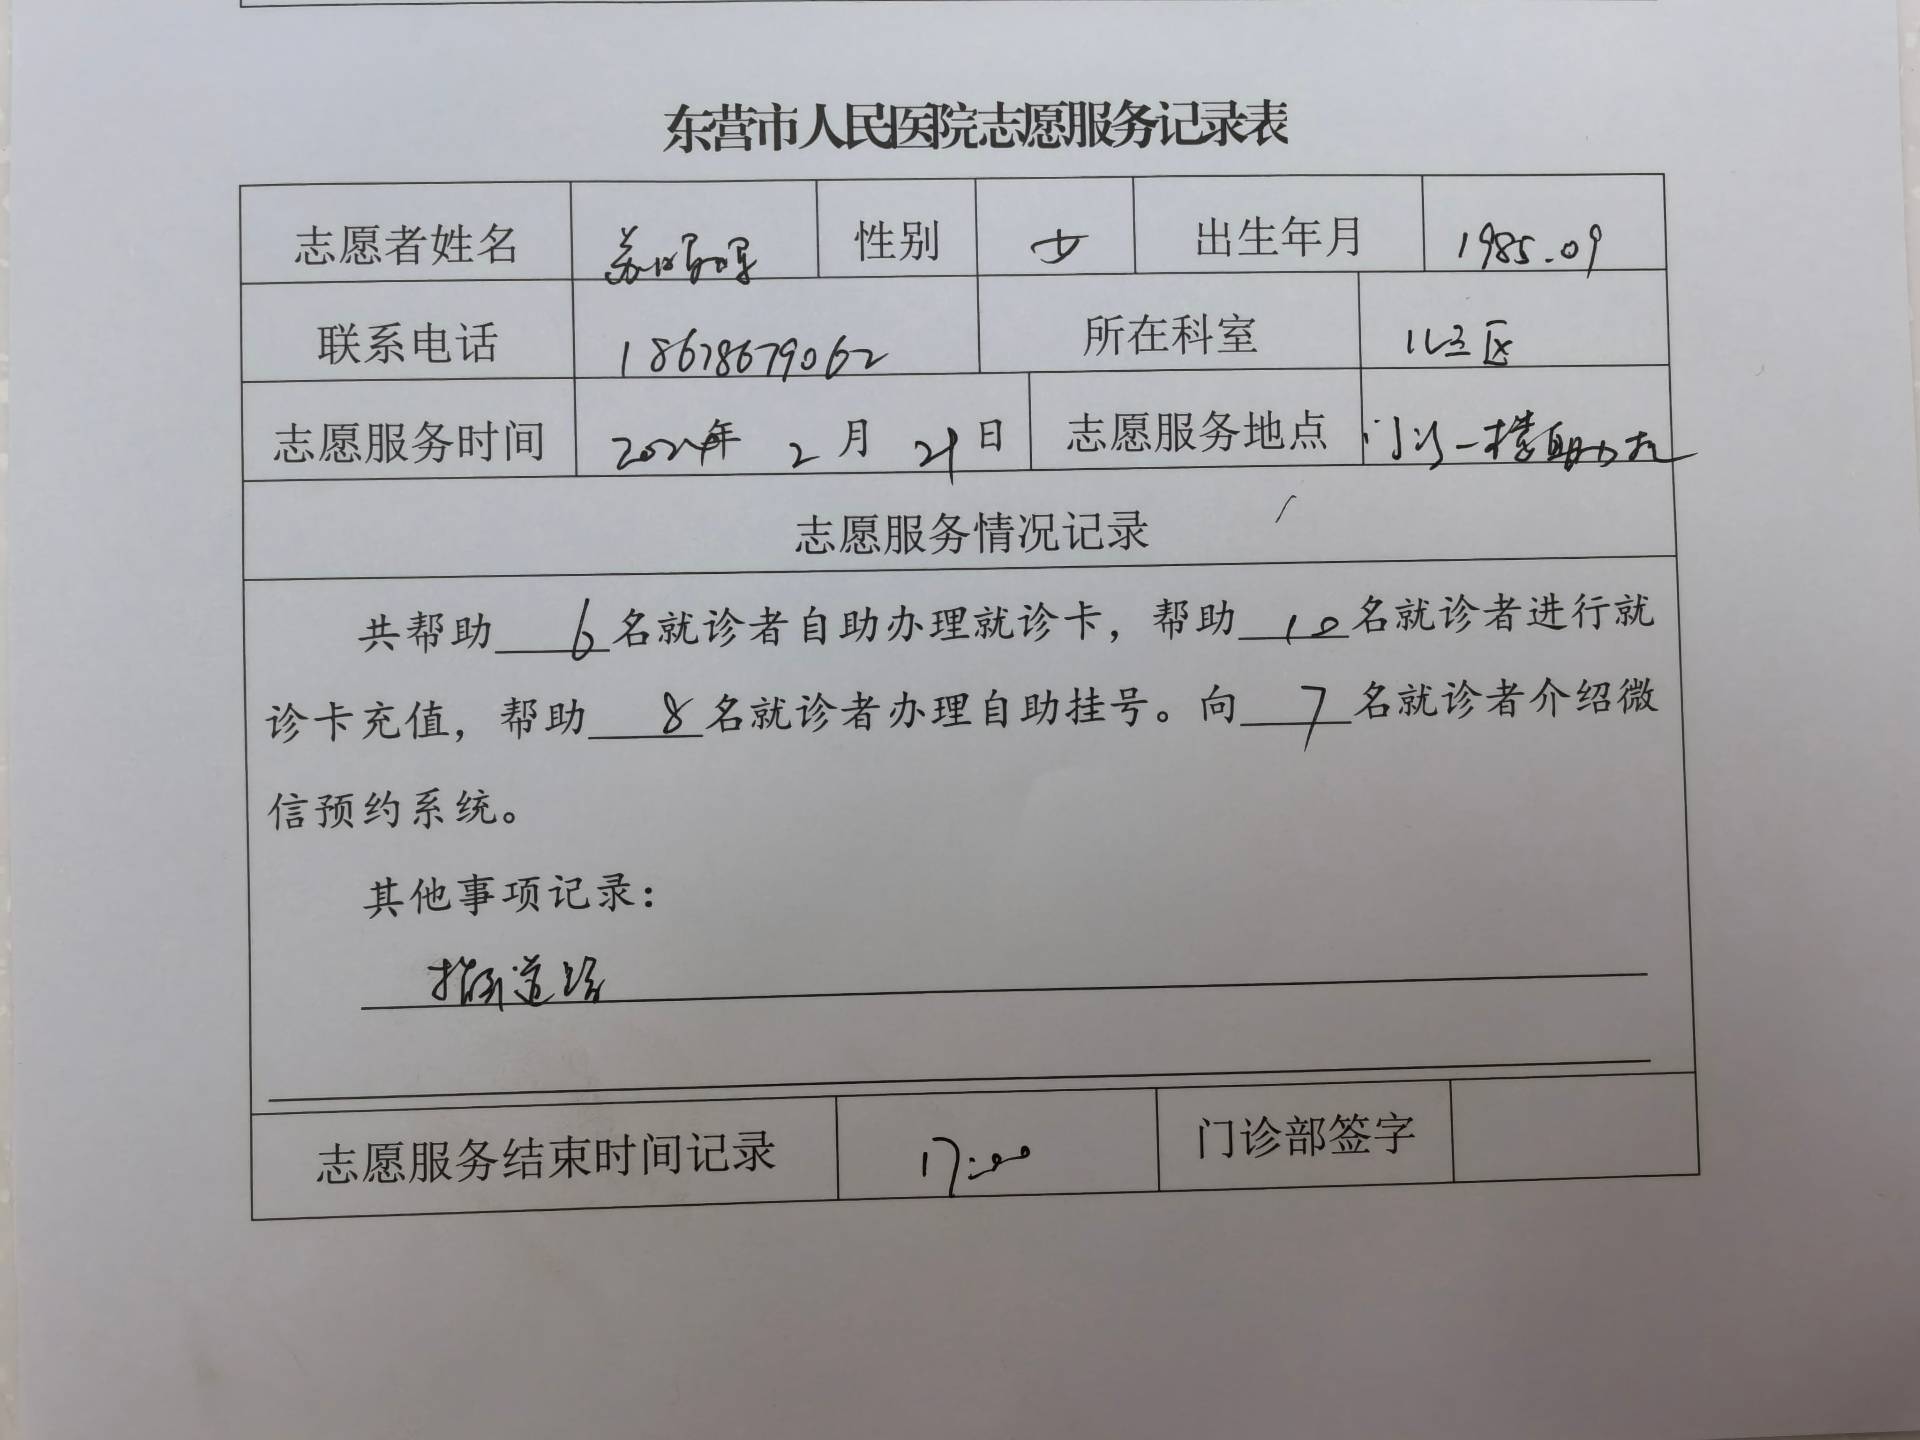 东营市人民医院志愿服务记录表
志愿者姓名 性别 女 出生年月 1985.09
联系电话 18678679062 所在科室 儿三区
志愿服务时间 年 2 月 21 日 志愿服务地点 门诊一楼自助机
志愿服务情况记录
共帮助 6 名就诊者自助办理就诊卡，帮助 10 名就诊者进行就
诊卡充值，帮助 8 名就诊者办理自助挂号。向 7 名就诊者介绍微
信预约系统。
其他事项记录：
指引道路
志愿服务结束时间记录 17:00 门诊部签字